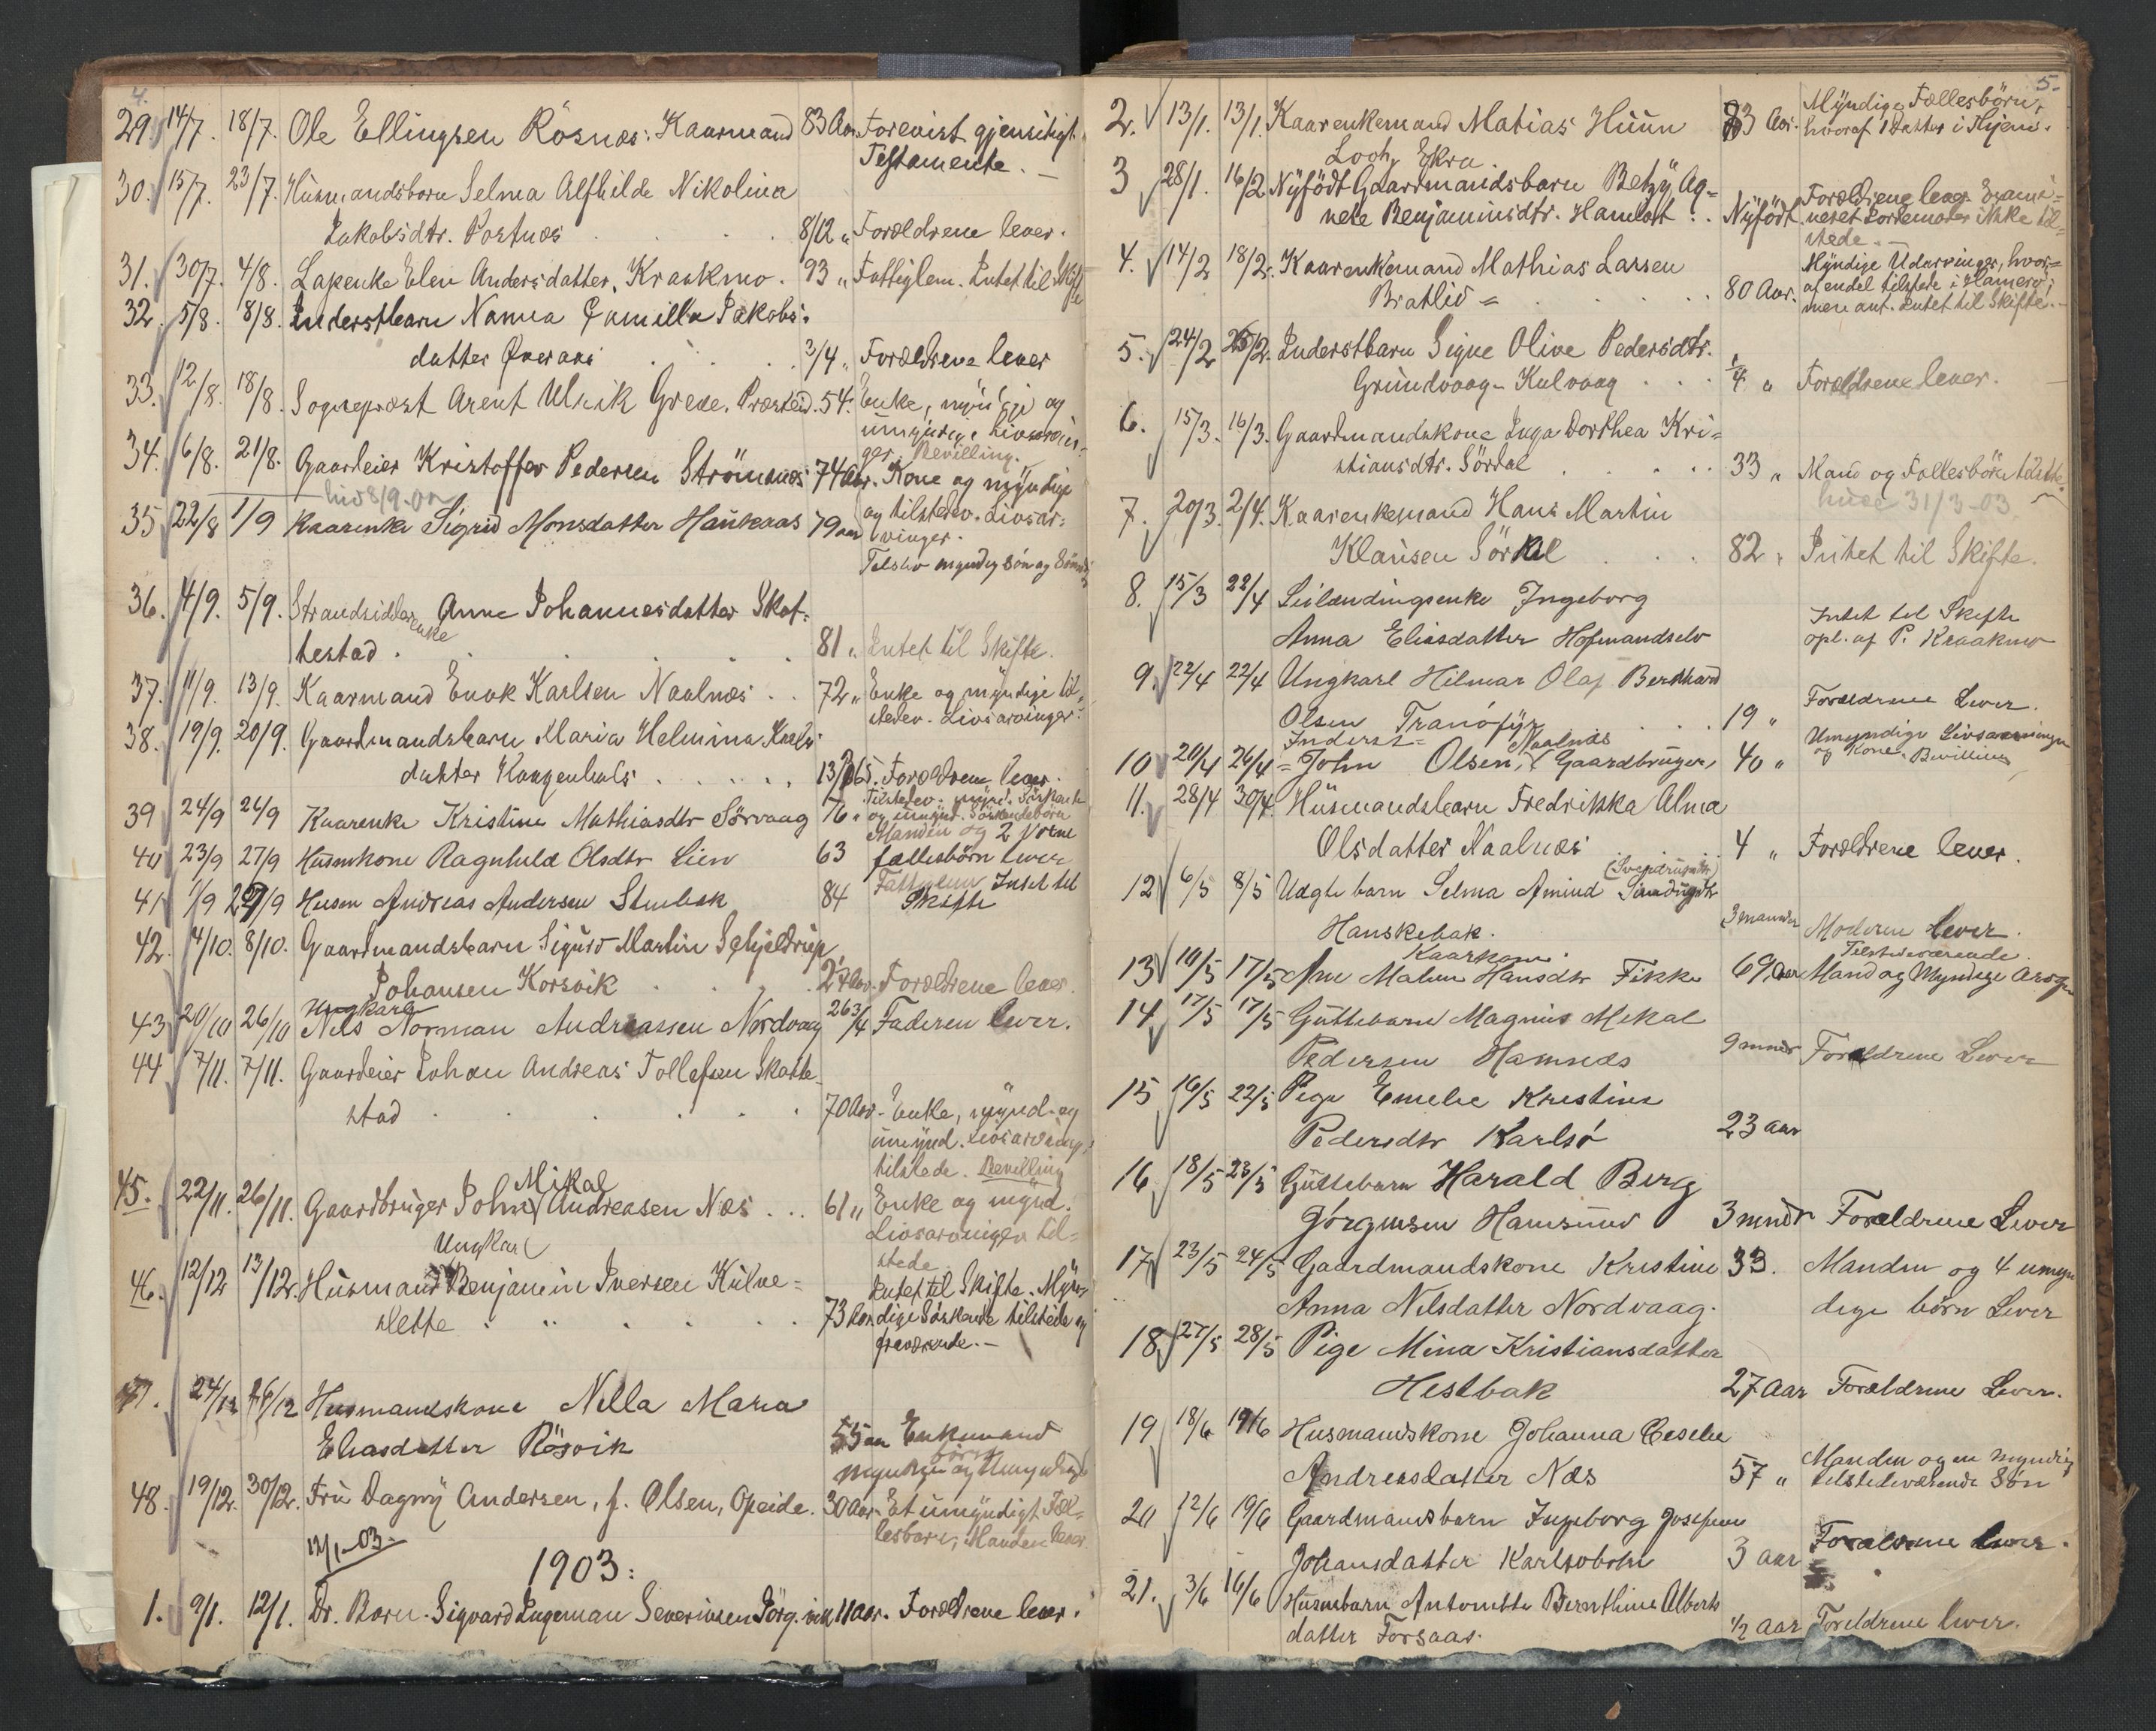 4.
29. 14/7. 18/7. Ole Ellingsen Rösnæs. Kaarmand 83 Aar. Forevist gjensidigt
Testamente. —
30. 15/7. 23/7. Husmandsbarn Selma Alfhilde Nikolina
Jakobsdtr. Portnæs 8/12 " Forældrene lever.
31. 30/7. 4/8. Lapenke Elen Andersdatter, Kraakmo. 93 " Fattiglem. Intet til Skifte
32. 5/8. 8/8. Inderstbarn Nanna Jamilla Jakobs-
datter 3/4 " Forældrene lever
33. 12/8. 18/8. Sogneprest Arent Ulrik Greve. Presteid. 54. Enke, myndige og
umyndige Livsarvin-
ger. Bevilling.
34. 6/8. 21/8. Gaardeier Kristoffer Pedersen Strömsnes 74 Aar. Kone og myndige
og tilstedev. Livsar-
vinger.
35 22/8 1/9 Kaarenke Sigrid Monsdatter Haukaas 79 aar
Tilstev myndig Sön og
36. 4/9. 5/9. Strandsidderenke Anne Johannesdatter Skot-
testad. 81 " Intet til Skifte.
37. 11/9. 13/9. Kaarmand Enok Karlsen Naalnæs .. 72 " Enke og myndige til-
stedev. Livsarvinger.
38. 19/9. 20/9. Gaardmandsbarn Maria Helmina Karls-
datter Kaagenhals 13/365. Forældrene lever.
39 24/9 26/9 Kaarenke Kristine Mathiasdtr Sørvaag 76 " Tilstedev. mynd. Söskende
og umynd. Söskendebörn
40 23/9 27/9 Husmkone Ragnhild Olsdtr Lien 63 Manden og 2 Voxne
fællesbörn lever
41 1/9 29/9 Husm Andreas Andersen Stubak 84 Fattiglem Intet til
Skifte
42. 4/10. 8/10. Gaardmandsbarn Sigurd Martin Schjeldrup
Johansen Korsvik 2 1/2 Aar. Forældrene lever.
Ungkarl
43 20/10 26/10 Nils Norman Andreassen Nordvaag 26 3/4 Faderen lever.
44 7/11. 7/11. Gaardeier Johan Andreas Tollefsen Skotte-
stad 70 Aar. Enke, mynd. og
umynd. Livsarvinger
tilstede. Bevilling
45. 22/11. 26/11. Gaardbruger Johan Mikal Andreasen Næs ... 61 " Enke og mynd.
Livsarvinger til-
stede
Ungkarl
46. 12/12 13/12. Husmand Benjamin Iversen Kulve-
slette 73 Aar Intet til Skifte. Myn-
dige Söskende tilstede og
fraværende. —
47. 24/12 26/12 Husmandskone Nella Maria
Eliasdatter Rösvik 55 aar Enkemand
myndige og Umyndige börn
48. 19/12. 30/12. Fru Dagny Andersen, f. Olsen, Opeide. 30 Aar. Et umyndigt Fæl-
lesbarn, Manden lever.
12/1-03.
1903:
1. 9/1. 12/1. Dr. Barn. Sigvard Ingeman Severinsen Jörg.vik 11 Aar. Forældrene lever.
5.
2. 13/1. 13/1. Kaarenkemand Matias Huun 83 Aar. Myndige Fællesbörn,
hvoraf 1 Datter i Hjem.
3 28/1. 16/2 Nyfödt Gaardmandsbarn Betzy Ag-
nete Benjaminsdtr. Hamlot .. Nyfödt. Forældrene lever. Exami-
neret Jordemoder ikke til-
stede. —
4. 14/2 18/2. Kaarenkemand Mathias Larsen
Bratlid 80 Aar. Myndige Udarvinger, hvor-
af endel tilstede i Hamerö,
men ant. Intet til Skifte. —
5. 24/2 26/2. Inderstbarn Signe Olive Pedersdtr.
Grundvaag - Kulvaag 1/4 " Forældrene lever.
6. 15/3. 16/3. Gaardmandskone Inga Dorthea Kri-
stiansdtr. Sördal 33 " Mand og Fællesbörn tilstede.
31/3-03
7. 20/3. 2/4. Kaarenkemand Hans Martin
Klausen Sörkil 82 " Intet til Skifte.
8. 15/3 22/4 Leilændingsenke Ingeborg
Anna Eliasdatter Hofmandselv Intet til Skifte
opl. af P. Kraakmo
9. 22/4 22/4 Ungkarl Hilmar Olaf Bernhard
Olsen Tranöfyr 19 " Forældrene lever.
10 20/4 26/4 Inderst = John Olsen, Naalnæs Gaardbruger, 40 " Umyndige Livsarvinger
og Kone. Bevilling
11. 28/4 30/4. Husmandsbarn Fredrikka Alma
Olsdatter Naalnæs 4 " Forældrene lever.
12 6/5 8/5 Uægte barn Selma Amind
Hanskebak. 3 maaneder Moderen lever.
13 10/5 17/5 Kaarkone Ane Malene Hansdtr Fikke 69 Aar Tilstedeværende
Mand og Myndige Arvger
14 17/5 17/5 Guttebarn Magnus Mekal
Pedersen Hamnes 9 mndr Forældrene Lever
15 16/5 22/5 Pige Emelie Kristine
Pedersdtr Karlsö 23 aar
16 18/5 23/5 Guttebarn Harald Berg
Jörgensen Hamsund 3 mndr Forældrene Lever
17 23/5 24/5 Gaardmandskone Kristine 33. Manden og 4 umyn
Anna Nilsdatter Nordvaag. dige börn Lever
18. 27/5 28/5 Pige Mina Kristiansdatter
Hestbak 27 Aar Forældrene Lever.
19 18/6 19/6 Husmandskone Johanna Cecelie
Andreasdatter Næs 57 " Manden og en myndig
tilstedeværende Sön
20 12/6 19/6 Gaardmandsbarn Ingeborg Josefine
Johansdatter Karlsöholm 3 aar Forældrene lever.
21. 3/6 16/6 Husmbarn Antonette Bernthine Alberts
datter Forsaas. 1/2 Aar Forældrene lever.